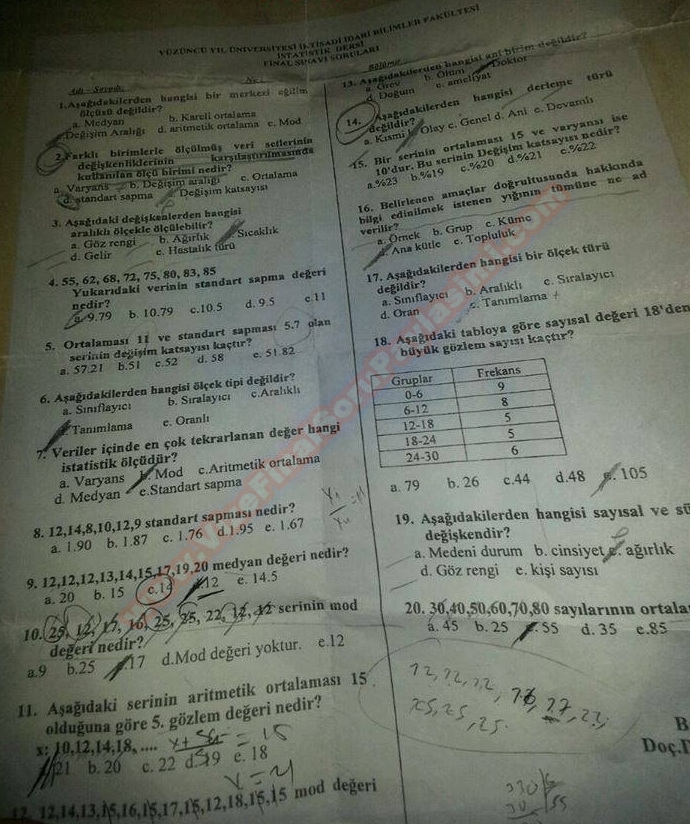 YÜZÜNCÜ YIL ÜNİVERSİTESİ İKTİSADİ İDARİ BİLİMLER FAKÜLTESİ
İSTATİSTİK DERSİ
FİNAL SINAVI SORULARI
Adı - Soyadı: No: Bölümü:
1.Aşağıdakilerden hangisi bir merkezi eğilim
ölçüsü değildir?
a. Medyan b. Kareli ortalama
Değişim Aralığı d. aritmetik ortalama e. Mod
2.Farklı birimlerle ölçülmüş veri setlerinin
değişkenliklerinin karşılaştırılmasında
kullanılan ölçü birimi nedir?
a. Varyans b. Değişim aralığı c. Ortalama
d. standart sapma Değişim katsayısı
3. Aşağıdaki değişkenlerden hangisi
aralıklı ölçekle ölçülebilir?
a. Göz rengi b. Ağırlık Sıcaklık
d. Gelir e. Hastalık türü
4. 55, 62, 68, 72, 75, 80, 83, 85
Yukarıdaki verinin standart sapma değeri
nedir?
a. 9.79 b. 10.79 c.10.5 d. 9.5 e.11
5. Ortalaması 11 ve standart sapması 5.7 olan
serinin değişim katsayısı kaçtır?
a. 57.21 b.51 c.52 d. 58 e. 51.82
6. Aşağıdakilerden hangisi ölçek tipi değildir?
a. Sınıflayıcı b. Sıralayıcı c.Aralıklı
Tanımlama e. Oranlı
7. Veriler içinde en çok tekrarlanan değer hangi
istatistik ölçüdür?
a. Varyans b. Mod c.Aritmetik ortalama
d. Medyan e.Standart sapma
8. 12,14,8,10,12,9 standart sapması nedir?
a. 1.90 b. 1.87 c. 1.76 d.1.95 e. 1.67
9. 12,12,12,13,14,15,17,19,20 medyan değeri nedir?
a. 20 b. 15 c.14 12 e. 14.5
10. 25, 12, 17, 16, 25, 25, 22, 12, 12 serinin mod
değeri nedir?
a.9 b.25 17 d.Mod değeri yoktur. e.12
11. Aşağıdaki serinin aritmetik ortalaması 15
olduğuna göre 5. gözlem değeri nedir?
x: 10,12,14,18, .... = 15
21 b. 20 c. 22 d. 19 e. 18
12. 12,14,13,15,16,15,17,15,12,18,15,15 mod değeri
13. Aşağıdakilerden hangisi ani birim değildir?
a. Grev b. Ölüm Doktor
d. Doğum e. ameliyat
14. Aşağıdakilerden hangisi derleme türü
değildir?
a. Kısmi Olay c. Genel d. Ani e. Devamlı
15. Bir serinin ortalaması 15 ve varyansı ise
10'dur. Bu serinin Değişim katsayısı nedir?
a.%23 b.%19 c.%20 d.%21 e.%22
16. Belirlenen amaçlar doğrultusunda hakkında
bilgi edinilmek istenen yığının tümüne ne ad
verilir?
a. Örnek b. Grup c. Küme
Ana kütle e. Topluluk
17. Aşağıdakilerden hangisi bir ölçek türü
değildir?
a. Sınıflayıcı b. Aralıklı c. Sıralayıcı
d. Oran e. Tanımlama
18. Aşağıdaki tabloya göre sayısal değeri 18'den
büyük gözlem sayısı kaçtır?
Gruplar Frekans
0-6 9
6-12 8
12-18 5
18-24 5
24-30 6
a. 79 b. 26 c.44 d.48 e. 105
19. Aşağıdakilerden hangisi sayısal ve sü
değişkendir?
a. Medeni durum b. cinsiyet c. ağırlık
d. Göz rengi e. kişi sayısı
20. 30,40,50,60,70,80 sayılarının ortala
a. 45 b. 25 55 d. 35 e.85
12, 12, 12,
25, 25, 25.
B
Doç.D